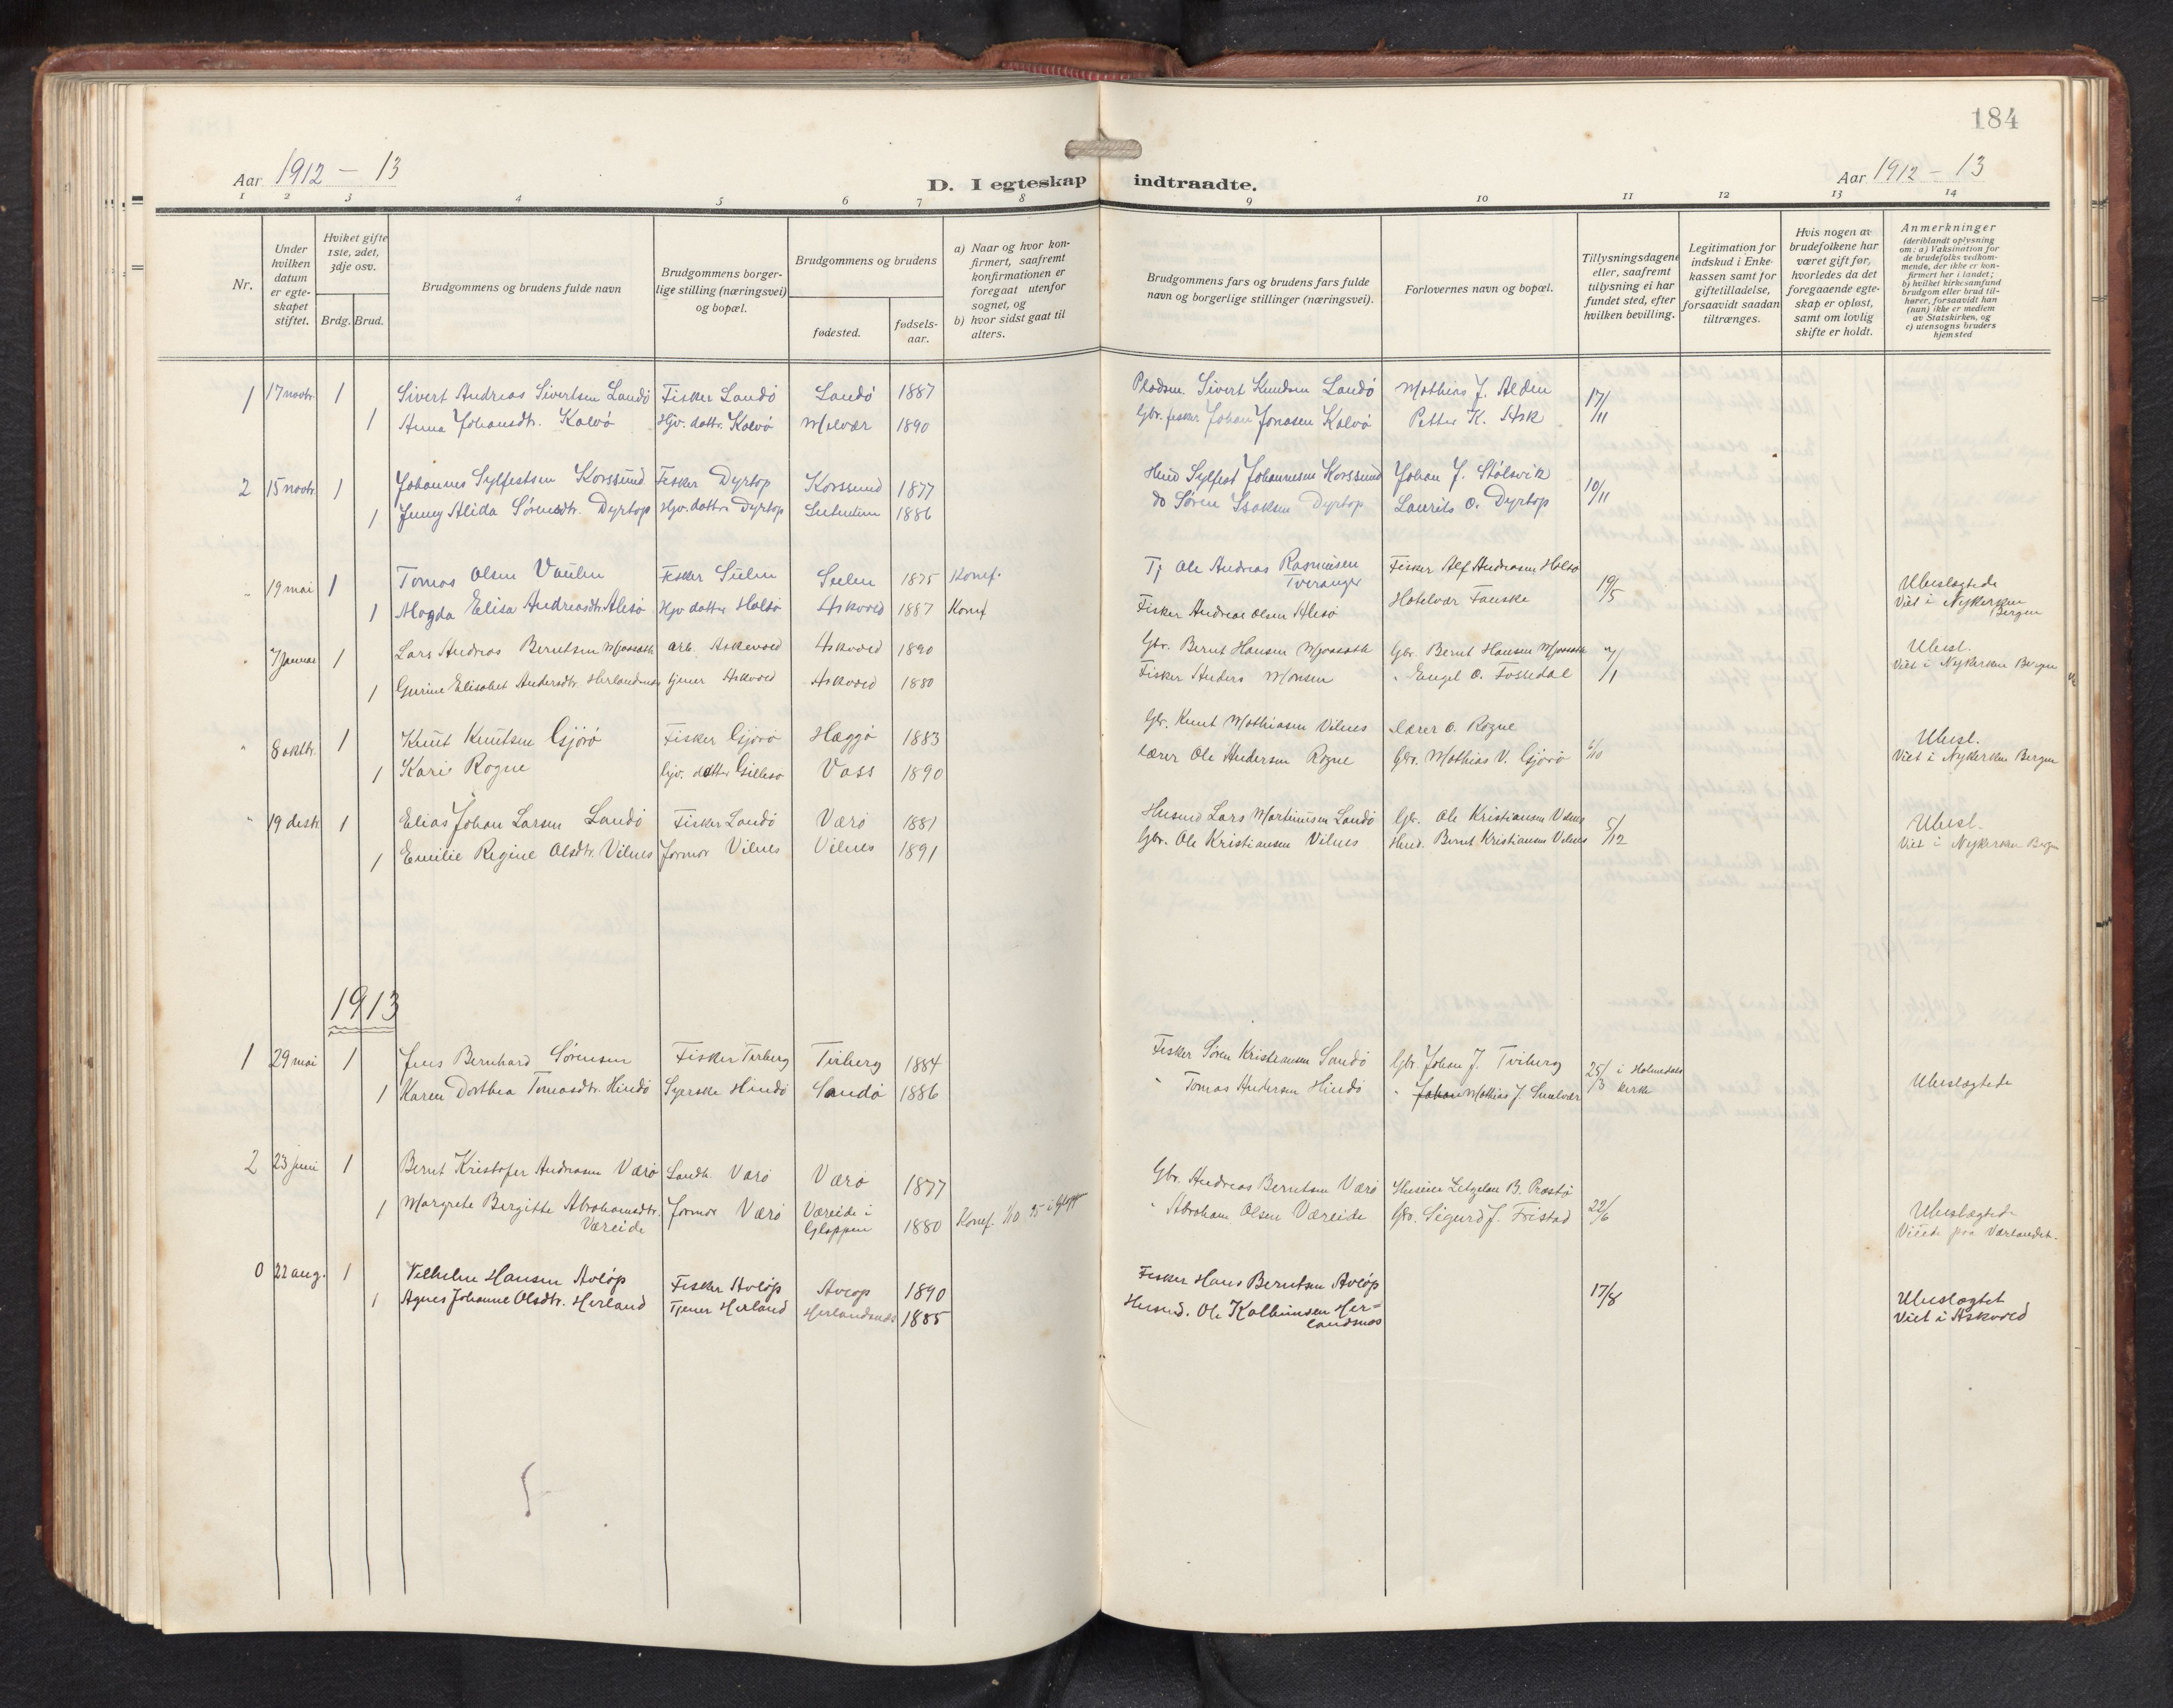 184
Aar 1912 – 13
D. I egteskap indtraadte.
Aar 1912 – 13
1 2 3 4 5 6 7 8 9 10 11 12 13 14
Nr.
Under hvilken datum er egteskapet stiftet.
Hviket gifte 1ste, 2det, 3dje osv.
Brdg. Brud.
Brudgommens og brudens fulde navn
Brudgommens borgerlige stilling (næringsvei) og bopæl.
Brudgommens og brudens
fødested.
fødselsaar.
a) Naar og hvor konfirmert, saafremt konfirmationen er foregaat utenfor sognet, og
b) hvor sidst gaat til alters.
Brudgommens fars og brudens fars fulde navn og borgerlige stillinger (næringsvei).
Forlovernes navn og bopæl.
Tillysningsdagene eller, saafremt tillysning ei har fundet sted, efter hvilken bevilling.
Legitimation for indskud i Enkekassen samt for giftetilladelse, forsaavidt saadan tiltrænges.
Hvis nogen av brudefolkene har været gift før, hvorledes da det foregaaende egteskap er opløst, samt om lovlig skifte er holdt.
Anmerkninger
(deriblandt oplysning om: a) Vaksination for de brudefolks vedkommende, der ikke er konfirmert her i landet;
b) hvilket kirkesamfund brudgom eller brud tilhører, forsaavidt han (hun) ikke er medlem av Statskirken, og
c) utensogns bruders hjemsted
1 17 novbr. 1 Sivert Andreas Sivertsen Landö Fisker Landö Landö 1887 Sivert Knudsen Landö Mathias J. Alden 17/11
1 Anna Johansdtr. Kalvö Hjv. dattr. Kalvö Melvær 1890 Gbr. fisker Johan Jonasen Kalvö Petter K. Ask
2 15 novbr. 1 Johannes Sylfestsen Korssund Fisker Dyrtop Korssund 1877 Husd Sylfest Johannesen Korssund Johan J. Stölsvik 10/11
1 Jenny Alida Sörensdtr. Dyrtop Hjv. dattr. Dyrtop 1886 do Sören Isaksen Dyrtop Laurits O. Dyrtop
" 19 mai 1 Tomas Olsen Vaulen Fisker Sulen Sulen 1875 Konf. Tj Ole Andreas Rasmussen Tveranger Fisker Alf Andreasen Holsö 19/5 Ubeslægtede
1 Magda Elisa Andreasdtr. Alesö Hjv. dattr. Holsö Askvold 1887 Konf Fisker Andreas Olsen Alesö Hotelvær Fauske Viet i Nykirken Bergen
" 7 januar 1 Lars Andreas Berntsen arb. Askevold Askvold 1890 Gbr. Bernt Hansen Gbr. Bernt Hansen Ubesl.
1 Gurine Elisabet Andersdtr. Herlandsnes tjener Askvold Askvold 1880 Fisker Anders Monsen " Engel O. Fossedal Viet i Nykirken Bergen
" 8 oktbr. 1 Knut Knutsen Gjörö Fisker Gjörö Hæggö 1883 Gbr. Knut Mathiasen Vilnes Lærer O. Rogne 6/10 Ubesl.
1 Kari Rogne Hjv. datter Voss 1890 Lærer Ole Andersen Rogne Gbr. Mathias V. Gjörö Viet i Nykirken Bergen
" 19 desbr. 1 Elias Johan Larsen Landö Fisker Landö Værö 1881 Husmd Lars Martinusen Landö Gbr. Ole Kristiansen Vilnes 5/12 Ubesl.
1 Emilie Regine Olsdtr. Vilnes Jormor Vilnes Vilnes 1891 Gbr. Ole Kristiansen Vilnes Husd. Bernt Kristiansen Vilnes Viet i Nykirken Bergen
1913
1 29 mai 1 Jens Bernhard Sörensen Fisker Tviberg Tviberg 1884 Fisker Sören Kristiansen Sandö Gbr. Johan J. Tviberg 25/5 i Holmedals kirke Ubeslægtede
1 Karen Dorthea Tomasdtr. Hindö Syerske Hindö Sandö 1886 " Tomas Andersen Hindö " Johan Mathias J. Smelvær
2 23 juni 1 Bernt Kristofer Andreasen Værö Landh. Værö Værö 1877 Gbr. Andreas Berntsen Værö B. Præstö 22/6
1 Margrete Bergitte Abrahamsdtr. Væreide Jormor Værö Væreide i Gloppen 1880 Konf. 1/10 95 i Glopp " Abraham Olsen Væreide Gbr. Sigurd J. Fristad Ubeslægtede
Viede paa Værlandet.
0 22 aug. 1 Vilhelm Hansen Avlöp Fisker Avlöp Avlöp 1890 Fisker Hans Berntsen Avlöp 17/8 Ubeslægtet
1 Agnes Johanne Olsdtr. Herland Tjener Herland Herlandsnes 1885 Husmd. Ole Kolbeinsen Herlandsnes Viet i Askvold